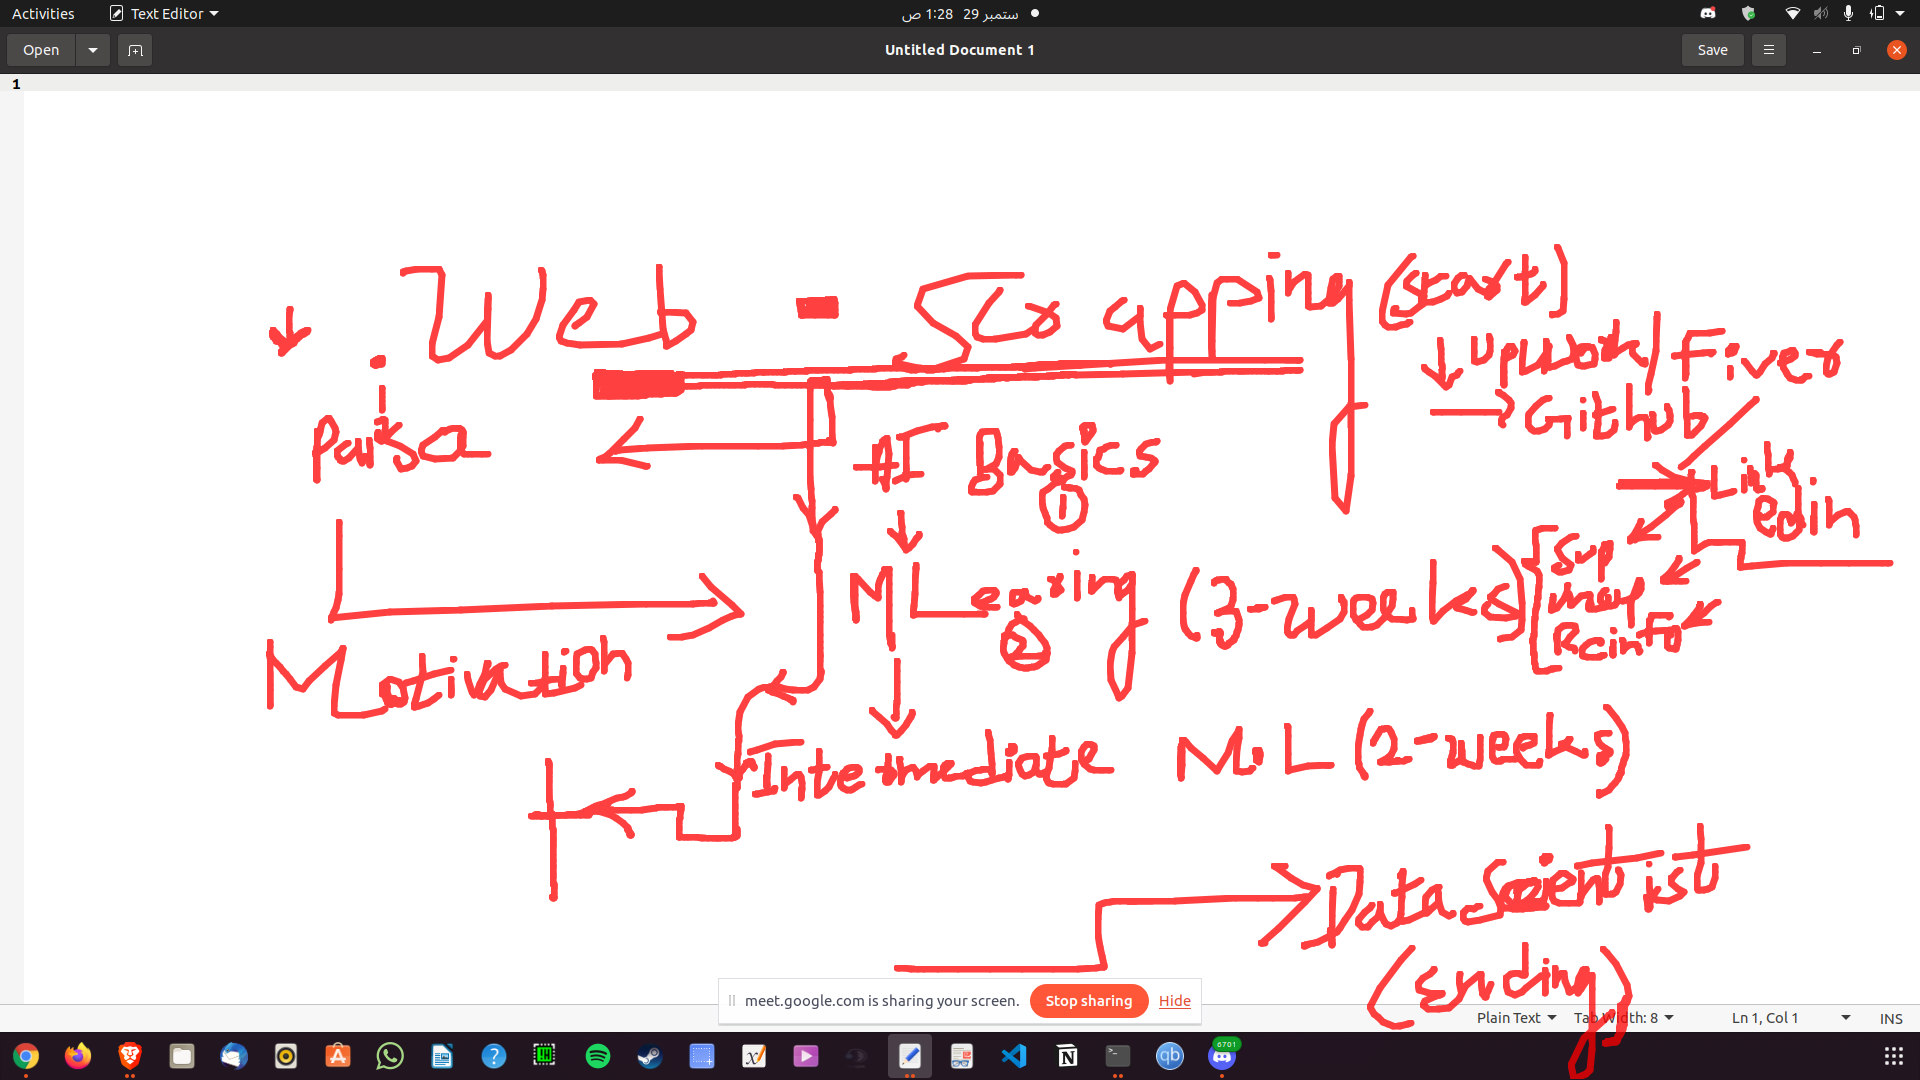 Activities Text Editor 29 ستمبر 1:28 ص
Open Untitled Document 1 Save
1
Web - Scrapping (start)
Upwork/Fiver
Github
Paisa
AI Basics
1
Linkedin
MLearing (3-weeks)
2
Sup
Unsup
Reinfo
Motivation
Intermediate M.L (2-weeks)
Data Scientist
(Ending)
meet.google.com is sharing your screen. Stop sharing Hide
Plain Text Tab Width: 8 Ln 1, Col 1 INS
6701